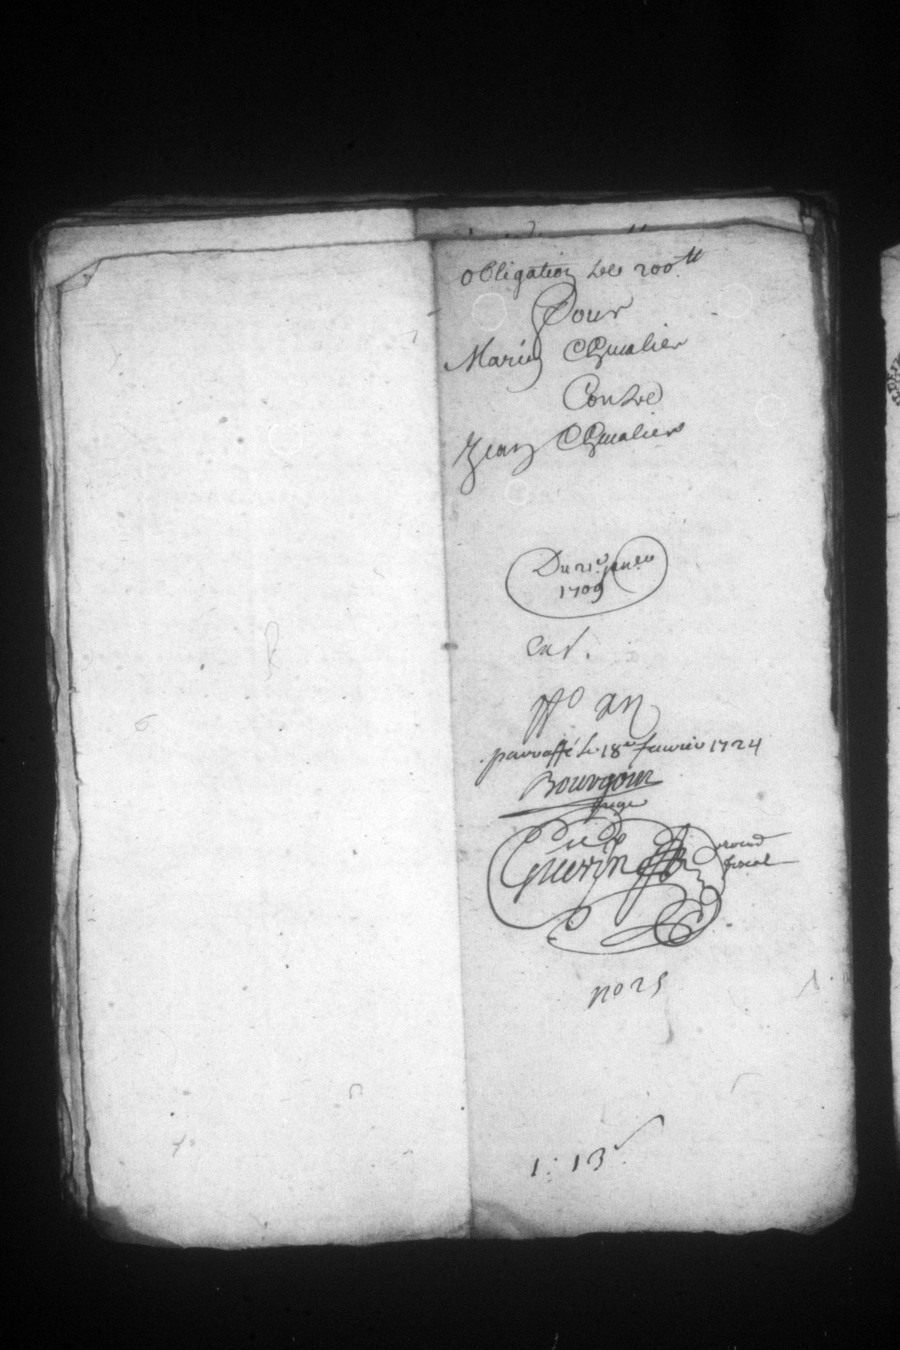 obligation de 200ᵗᵗ
Pour
Marie Chevalier
Contre
Jean Chevalier
Du 21e janer
1709
parraffé le 18e fevrier 1724
Bourgoin
juge
Guerin
fiscal
no 25
1: 13